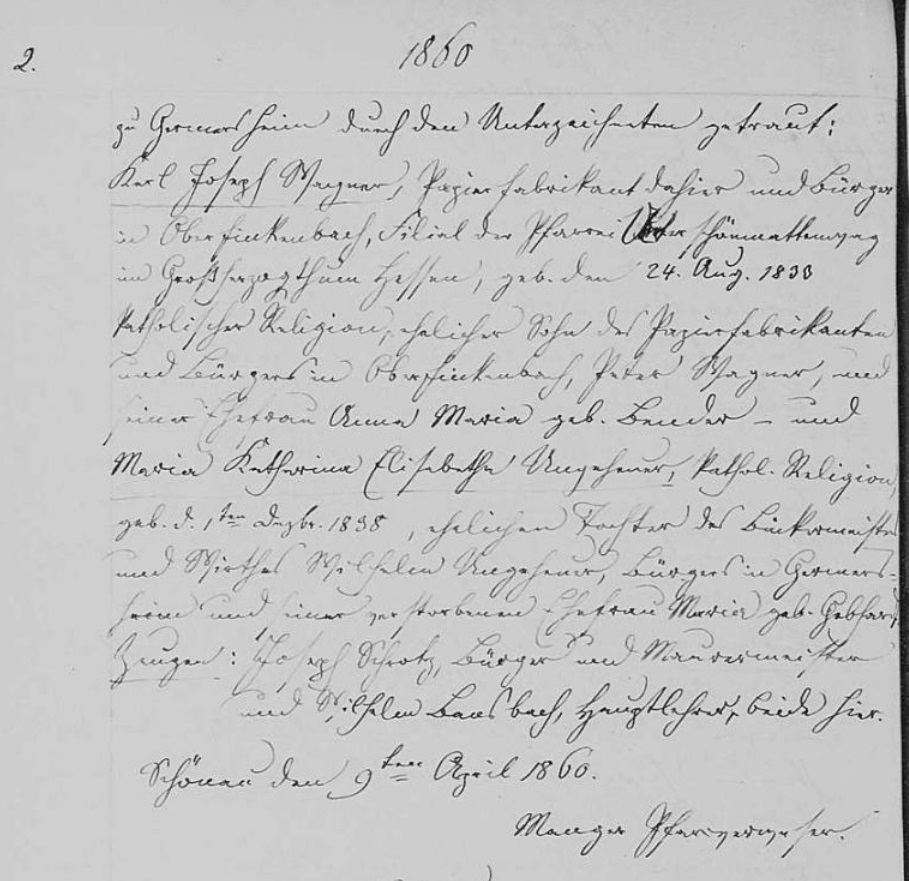 2.
1860
zu Germersheim durch den Unterzeichneten getraut:
Karl Joseph Wagner, Papierfabrikant dahier und Bürger
in Oberfinkenbach, Filial der Pfarrei Unterschönmattenwag
im Großherzogthum Hessen, geb. den 24. Aug. 1833
katholischer Religion, ehelicher Sohn des Papierfabrikanten
und Bürgers in Oberfinkenbach, Peter Wagner, und
seiner Ehefrau Anna Maria geb. Bender – und
Maria Katharina Elisabetha Ungeheuer, kathol. Religion,
geb. d. 1ten Dezbr. 1838, ehelichen Tochter des Bäckermeisters
und Wirthes Wilhelm Ungeheuer, Bürgers in Germers=
heim und seiner verstorbenen Ehefrau Maria geb. Gebhart,
Zeugen: Joseph Schrotz, Bürger und Maurermeister
und Wilhelm Bansbach, Hauptlehrer, beide hier.
Schönau den 9ten April 1860.
Manger Pfarrverweser.